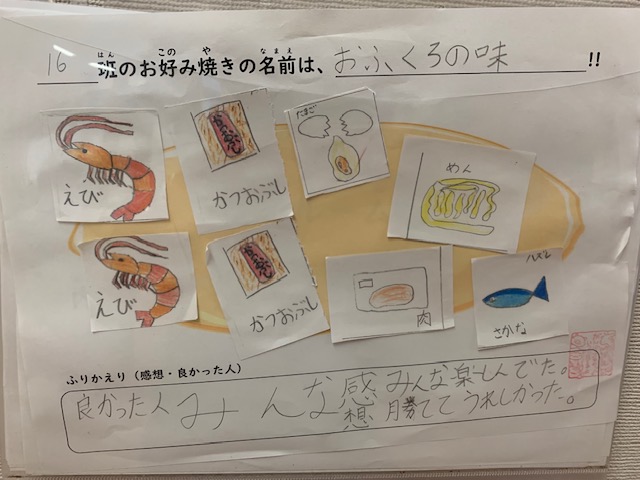 16班のお好み焼きの名前は、おふくろの味!!
はん この や なまえ
えび
かつおぶし
たまご
めん
えび
かつおぶし
肉
ハズレ
さかな
ふりかえり（感想・良かった人）
良かった人みんな 感想 みんな楽しんでた。
勝ててうれしかった。